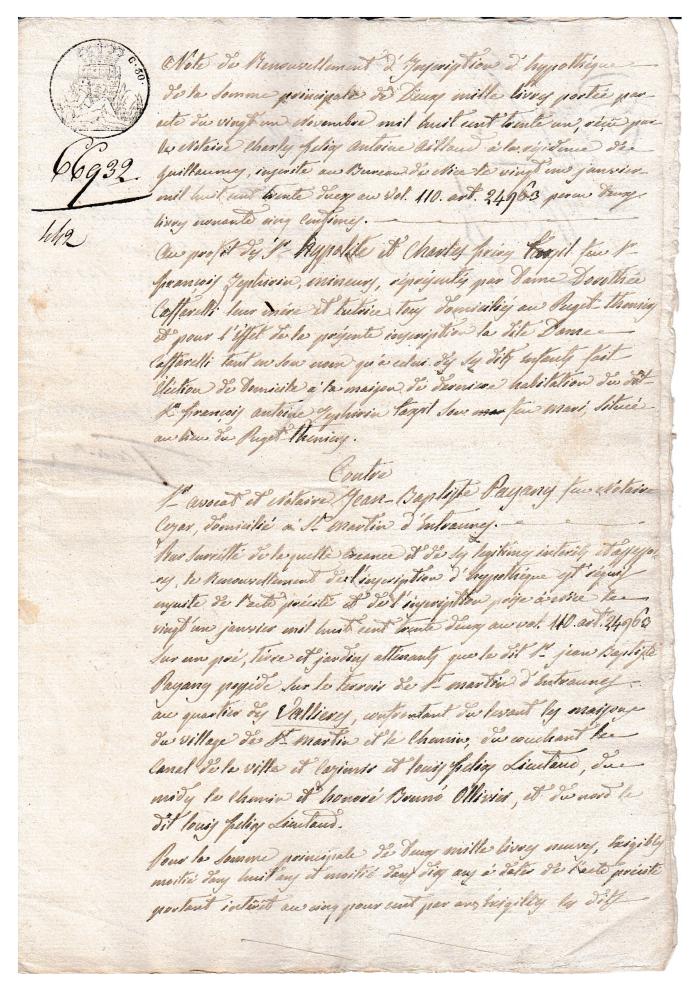 C. 80.
66932
442
Note de Renouvellement d'Inscription d'hypothèque
de la somme principale de Deux mille livres portée par
acte du vingt un Novembre mil huit cent trente un, reçu par
le Notaire Charles Felix Antoine à la résidence de
Guillaumes, inscrite au Bureau de Nice le vingt un janvier
mil huit cent trente deux au vol. 110. art. 24963 perçu Deux
livres nonante cinq centimes.
Au profit des Srs Hyppolite et Charles frères feu Sr
François Zephirin, mineurs, représentés par Dame Dorothée
Caffarelli leur mère et tutrice tous domiciliés au Puget-Theniers
et pour l'effet de la présente inscription la dite Dame
Caffarelli tant en son nom qu'à celui des ses dits enfants fait
élection de Domicile à la maison de dernière habitation du dit
Sr François Antoine Zephirin son feu mari, située
au lieu du Puget Theniers.
Contre
Sr avocat et Notaire Jean-Baptiste Payany feu Notaire
Cezar, domicilié à St Martin d'Entraunes.
Pour sureté de la quelle créance et de ses légitimes intérêts et accessoi-
res, le Renouvellement de l'inscription d'hypothèque est requis
ensuite de l'acte précité et de l'inscription prise à Nice le
vingt un janvier mil huit cent trente deux au vol. 110. art. 24963
sur un pré, terre et jardins attenants que le dit Sr jean Baptiste
Payany possède sur le terroir de St martin d'Entraunes
au quartier des Vallieres, confrontant du levant les maisons
du village de St Martin et le Chemin, du couchant le
Canal de la ville et et louis felix Lieutaud, du
midy le chemin et honoré Bruno Ollivier, et du nord le
dit louis felix Lieutaud.
Pour la somme principale de Deux mille livres neuves, Exigibles
moitié dans huit ans et moitié dans dix ans à dater de l'acte précité
portant intérêt au cinq pour cent par an exigibles les dits